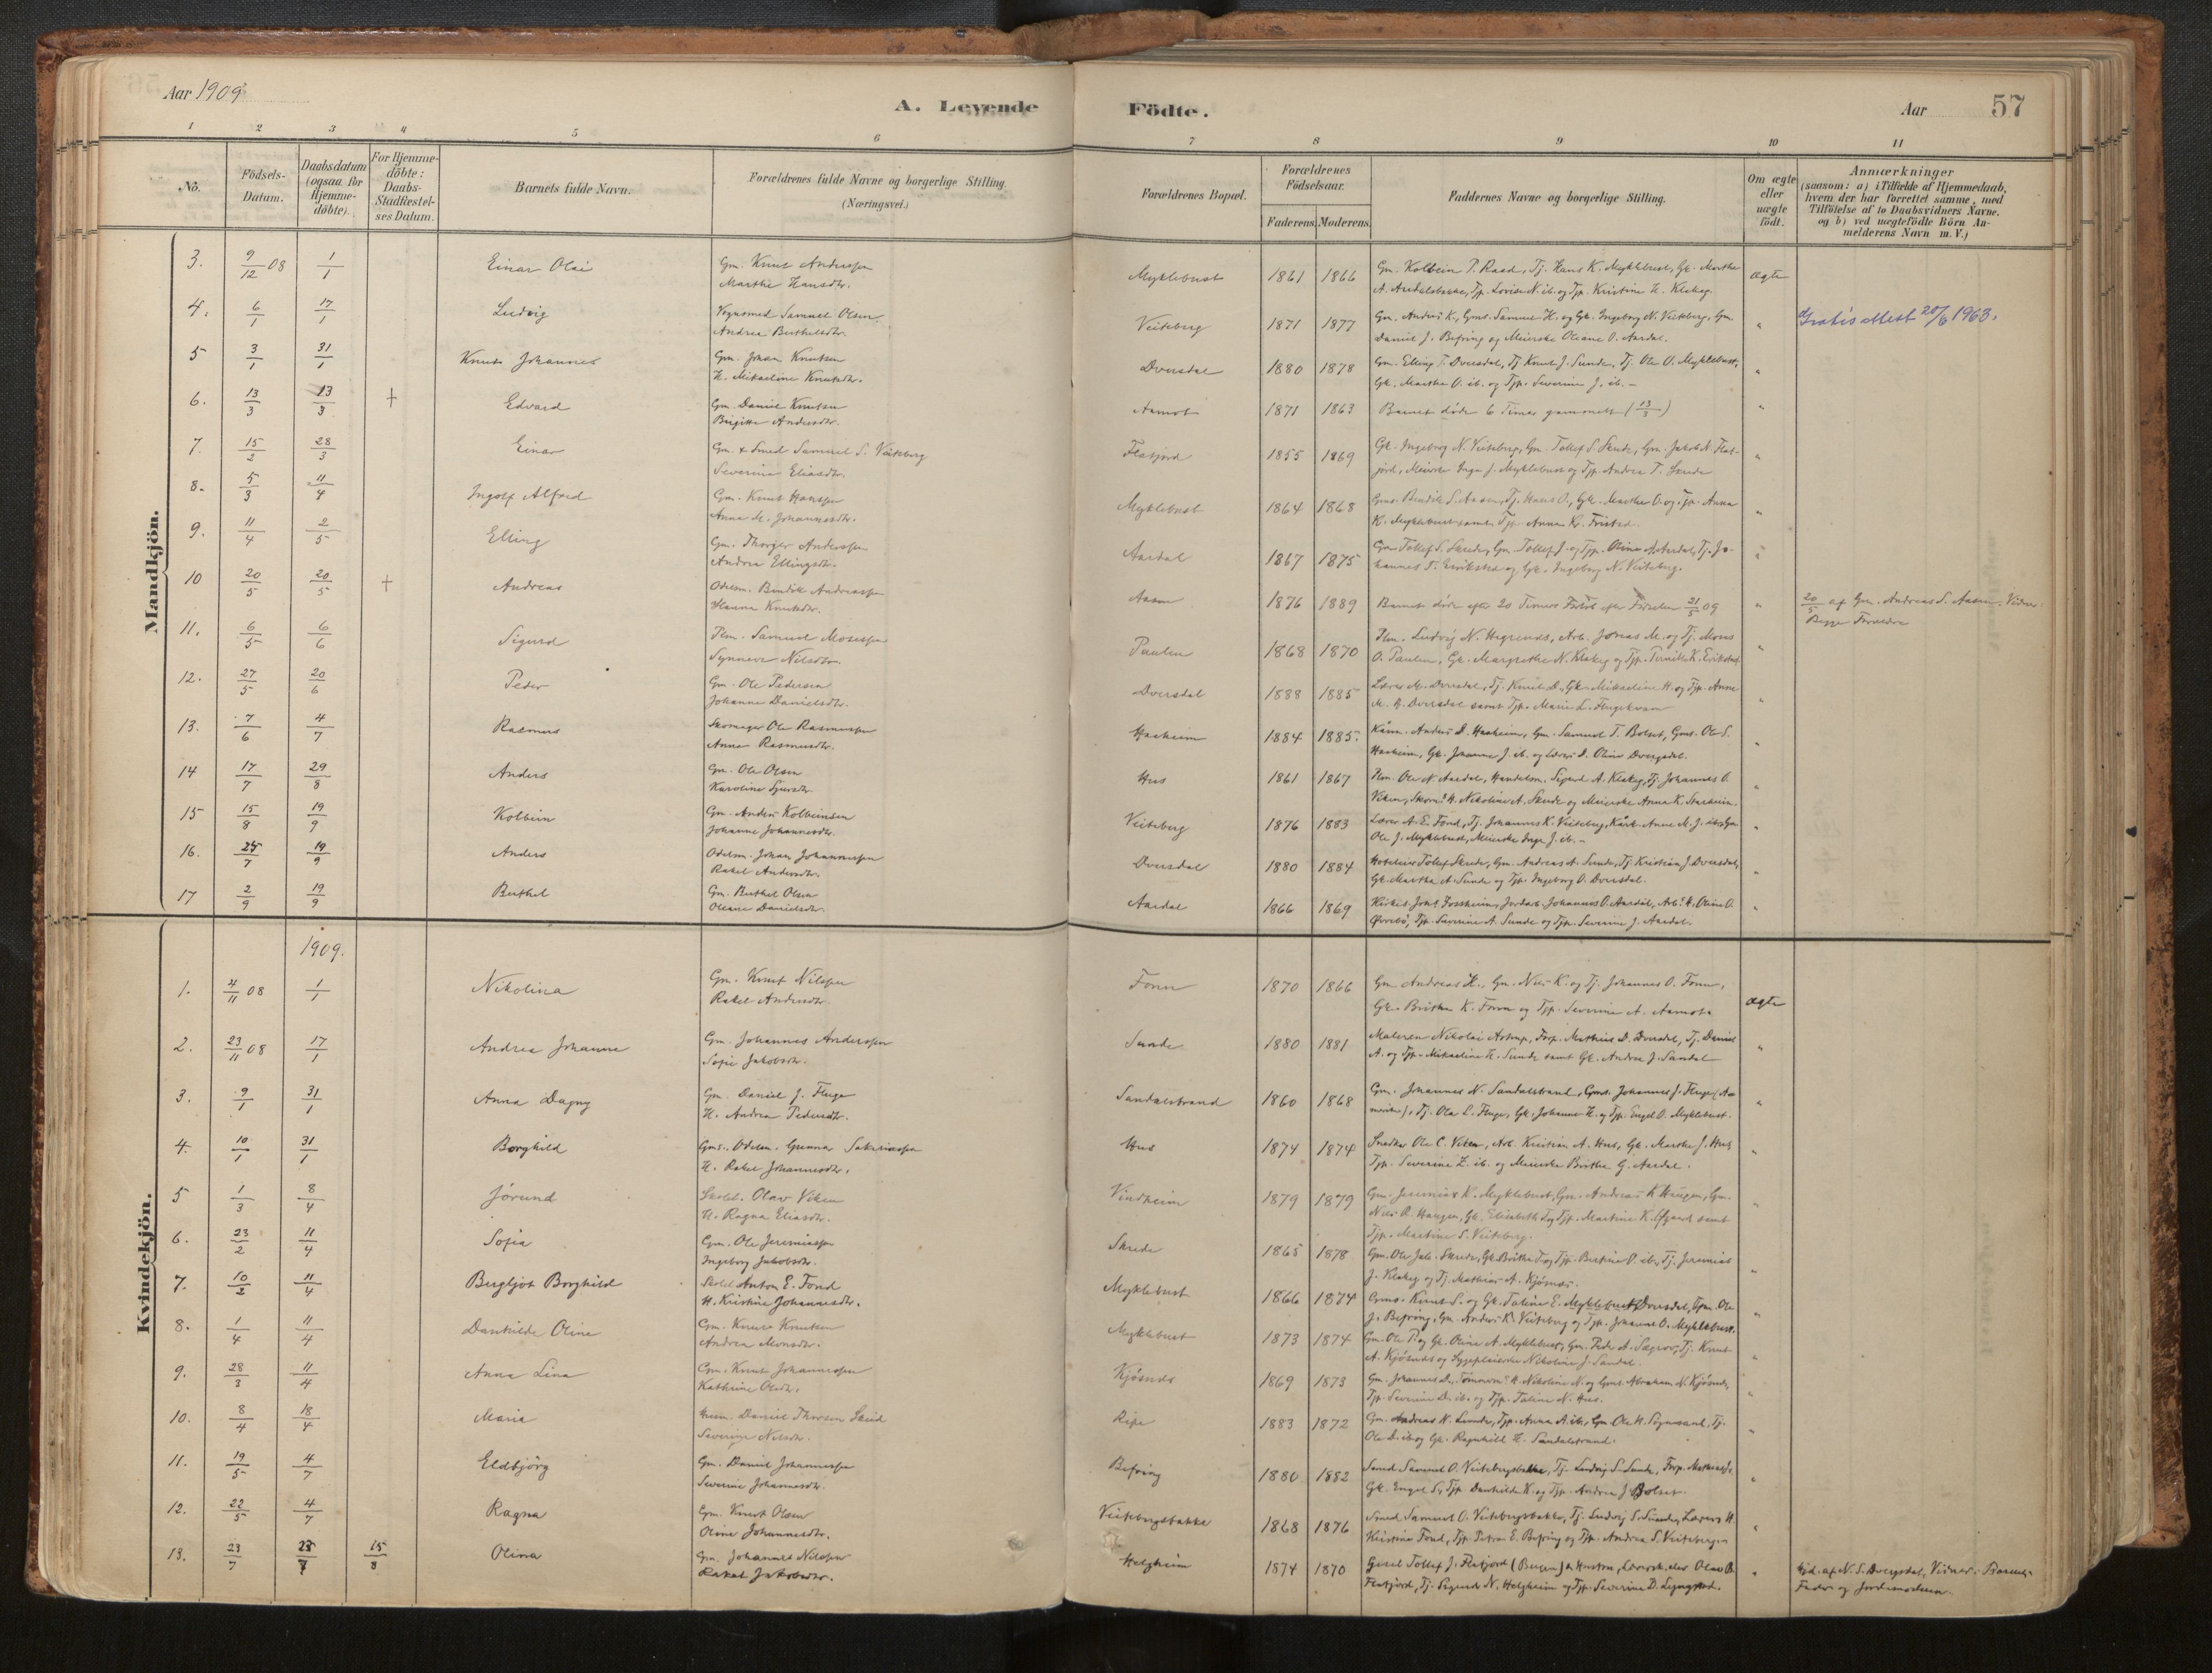 Aar 1909
A. Levende Födte.
Aar
57
1 2 3 4 5 6 7 8 9 10 11
No.
Födsels-Datum.
Daabsdatum (ogsaa for Hjemme-döbte).
For Hjemme-döbte: Daabs-Stadfæstel-ses Datum.
Barnets fulde Navn.
Forældrenes fulde Navne og borgerlige Stilling.
(Næringsvei.)
Forældrenes Bopæl.
Forældrenes Födselsaar.
Faderens. Moderens.
Faddernes Navne og borgerlige Stilling.
Om ægte eller uægte födt.
Anmærkninger
(saasom: a) i Tilfælde af Hjemmedaab,
hvem der har forrettet samme, med
Tilföielse af to Daabsvidners Navne.
og b) ved uægtefödte Börn An-
melderens Navn m. V.)
Mandkjön.
3. 9/12 08 1/1 Einar Olai Gm. Knut Anderssen Myklebust 1861 1866 Gm. Kolbein P. Raad, Tj. Hans K. Myklebust, Gk. Marthe ægte
Marthe Hansdtr. A. Aardalsbakke, Tjp. Lovise N. ib. og Tjp. Kristine H. Klakeg.
4. 6/1 17/1 Ludvig Vognmd Samuel Olsen Veiteberg 1871 1877 Gm. Anders K., Gms. Samuel H. og Gk. Ingeborg N. Veiteberg, Gm. " Gratis attest 20/6 1963.
Andrea Berthelsdtr. Daniel J. Befring og Meierske Oleane O. Aardal.
5 3/1 31/1 Knut Johannes Gm. Johan Knutsen Dversdal 1880 1878 Gm. Elling T. Dversdal, Tj. Knut J. Sunde, Tj. Ole O. Myklebust, "
H. Mikaeline Knutsdtr. Gk. Marthe O. ib. og Tjp. Severine J. ib. -
6. 13/3 13/3 + Edvard Gm. Daniel Knutsen Aamot 1871 1863 Barnet døde 6 Timer gammelt (13/3) "
Birgitte Andersdtr.
7. 15/2 28/3 Einar Gm. & Smed Samuel S. Veiteberg Flatjord 1855 1869 Gk. Ingeborg N. Veiteberg, Gm. Tollef S. Skrede, Gm. Jakob N. Flat- "
Severine Eliasdtr. jord, Meierske Inga J. Myklebust og Tjp. Andrea T. Skrede
8. 5/3 11/4 Ingolf Alfred Gm. Knut Hanssen Myklebust 1864 1868 Gms. Bendik S. Aasen, Tj. Hans O., Gk. Marthe O. og Tjp. Anna "
Anne M. Johannesdtr. K. Myklebust samt Tjp. Anna Kr. Fristad.
9. 11/4 2/5 Elling Gm. Thorger Anderssen Aardal 1867 1875 Gm Tollef S. Skrede, Gm. Tollef J. og Tjp. Oline A. Aardal, Tj. Jo- "
Andrea Ellingsdtr. hannes T. Eirikstad og Gk. Ingeborg N. Veiteberg.
10 20/5 20/5 + Andreas Odelsm. Bendik Andreassen Aasen 1876 1889 Barnet døde efter 20 Timers Forløb efter Fødselen 21/5 09 " 20/5 af Gm. Andreas S. Aasen. Vidner:
Hanna Knutsdtr. Begge Forældre
11. 6/5 6/6 Sigurd Plm. Samuel Mosessen Paulen 1868 1870 Plm. Ludvig N. Hegrenes, Arb. Jonas M. og Tj. Moses "
Synneve Nilsdtr. O. Paulen, Gk. Margrethe N. Klakeg og Tjp. Pernille K. Eirikstad.
12. 27/5 20/6 Peder Gm. Ole Pedersen Dversdal 1888 1885 Lærer M. Dversdal, Tj. Knut D., Gk. Mikaeline H. og Tjp. Anne "
Johanne Danielsdtr. M. G. Dversdal samt Tjp. Marie L. Flugekvam
13. 7/6 4/7 Rasmus Skomager Ole Rasmussen Haaheim 1884 1885. Kårm. Anders D. Haaheim, Gm. Samuel T. Bolset, Gms. Ole S. "
Anna Rasmusdtr. Haaheim, Gk. Johanne J. ib. og Lærer D. Oline Dvergsdal.
14 17/7 29/8 Anders Gm. Ole Olsen Hus 1861 1867 Plm. Ole N Aardal, Handelsm. Sigurd A. Klakeg, Tj. Johannes O. "
Karoline Sjursdtr. Viken, Skom? H. Nikoline A. Skrede og Meierske Anna K. Starheim.
15 15/8 19/9 Kolbein Gm. Anders Kolbeinsen Veiteberg 1876 1883 Lærer A. E. Fond, Tj. Johannes K. Veiteberg, Kårk. Anne M. J. ib, Gm "
Johanne Johannesdtr. Ole J. Myklebust, Meierske Inga J. ib. -
16. 25/7 19/9 Anders Odelsm. Johan Johannessen Dversdal 1880 1884 Hoteleier Tollef Skrede, Gm. Andreas A. Sunde, Tj. Kristian J. Dversdal, "
Rakel Andersdtr. Gk. Marthe A. Sunde og Tjp. Ingeborg O. Dversdal.
17 2/9 19/9 Berthel Gm. Berthel Olsen Aardal 1866 1869 Kirkes. Joh. Fossheim, Jordarb. Johannes O. Aardal, Arb? H. Oline O. "
Oleane Danielsdtr. Øvrebø, Tjp. Severine A. Sunde og Tjp. Severine J. Aardal.
Kvindekjön.
1909.
1. 4/11 08 1/1 Nikolina Gm. Knut Nilssen Fonn 1870 1866 Gm Andreas H., Gm. Nils K. og Tj. Johannes O. Fonn, ægte
Rakel Andersdtr. Gk. Brithe K. Fonn og Tjp. Severine A. Aamot.
2. 23/11 08 17/1 Andrea Johanne Gm. Johannes Anderssen Sunde 1880 1881 Maleren Nikolai Astrup, Forp. Mathias D. Dversdal, Tj. Daniel "
Sofie Jakobsdtr. A. og Tjp. Mikaeline H. Sunde samt Gk. Andrea J. Sandal
3. 9/1 31/1 Anna Dagny Gm. Daniel J. Fluge Sandalstrand 1860 1868 Gm. Johannes N. Sandalstrand, Gms. Johannes J. Fluge (Am- "
H. Andrea Pedersdtr. merika), Tj. Ola L. Fluge, Gk. Johanne H. og Tjp. Engel O. Myklebust.
4. 10/1 31/1 Borghild Gms. Odelsm. Gunnar Sakariassen Hus 1874 1874 Snedker Ole C. Viken, Arb. Kristian A. Hus, Gk. Marthe J. Hus, "
H. Rakel Johannesdtr. Tjp. Severine Z. ib. og Meierske Brithe G. Aardal.
5 1/3 8/4 Jórund Skolel. Olav Viken Vindheim 1879 1879 Gm. Jeremias K. Myklebust, Gm. Andreas K Haugen, Gm. "
H. Ragna Eliasdtr. Nils R. Haugen, Gk. Elisabeth T. og Tjp. Martine K. Øfgaard samt
Tjp. Martine S. Veiteberg.
6. 23/2 11/4 Sofia Gm. Ole Jeremiassen Skrede 1865 1878 Gm. Ole Jak. Skrede, Gk. Brithe T. og Tjp. Bertine P. ib., Tj. Jeremias "
Ingeborg Jakobsdtr. J. Klakeg og Tj. Mathias A. Kjøsnes.
7. 10/2 11/4 Bergljot Borghild Skolel Anton E. Fond Myklebust 1866 1874 Gms. Knut S. og Gk. Taline E. Myklebust, Dversdal, Gm. Ole "
H. Kristine Johannesdtr. J. Befring, Gm. Anders K. Veiteberg og Tjp. Johanne O. Myklebust.
8. 1/4 11/4 Danhilde Oline Gm. Knut Knutsen Myklebust 1873 1874 Gm. Ole P. og Gk. Oline A. Myklebust, Gm. Peder A. Sægrov, Tj. Knut "
Andrea Monsdtr. A. Kjøsnes og Sygepleierske Nikoline J. Sandal.
9. 28/3 11/4 Anna Lina Gm. Knut Johannessen Kjøsnes 1869 1873 Gm. Johannes D., Tømmerm? H. Nikoline N. og Gms. Abraham N. Kjøsnes, "
Kathrine Olsdtr. Tjp. Severine D. ib. og Tjp. Taline N. Hus.
10. 8/4 18/4 Maria Husm. Daniel Thorsen Skeid Ripe 1883 1872 Gm. Andreas N. Sunde, Tjp. Anna A. ib., Gm. Ole H. Sognesand, Tj. "
Severine Nilsdtr. Ole D. ib. og Gk. Ragnhild H. Sandalstrand.
11. 19/5 4/7 Eldbjörg Gm. Daniel Johannessen Befring 1880 1882 Smed Samuel O. Veitebergsbakke, Tj. Ludvig S. Sunde, Forp. Mathias D., "
Severine Johannesdtr. Gk. Engel S., Tjp. Danhilde K. og Tjp. Andrea J. Bolset.
12. 22/5 4/7 Ragna Gm. Knut Olsen Veitebergsbakke 1868 1876 Smed Samuel O. Veitebergsbakke, Tj. Ludvig S. Sunde, Lærers H. "
Oline Johannesdtr. Kristine Fond, Tjp. Petra E. Befring og Tjp. Andrea S. Veiteberg.
13. 23/7 25/7 15/8 Olina Gm. Johannes Nilssen Helgheim 1874 1870 Gesel Tollef J. Flatjord (Bergen) & Hustru, Lærersk. elev Olav B. " Hjd. af N. S. Dvergsdal, Vidner: Barnets
Rakel Jakobsdtr. Flatjord, Tj. Sigurd N. Helgheim og Tjp. Severine D. Lyngstad. Fader og Jordemoderen.